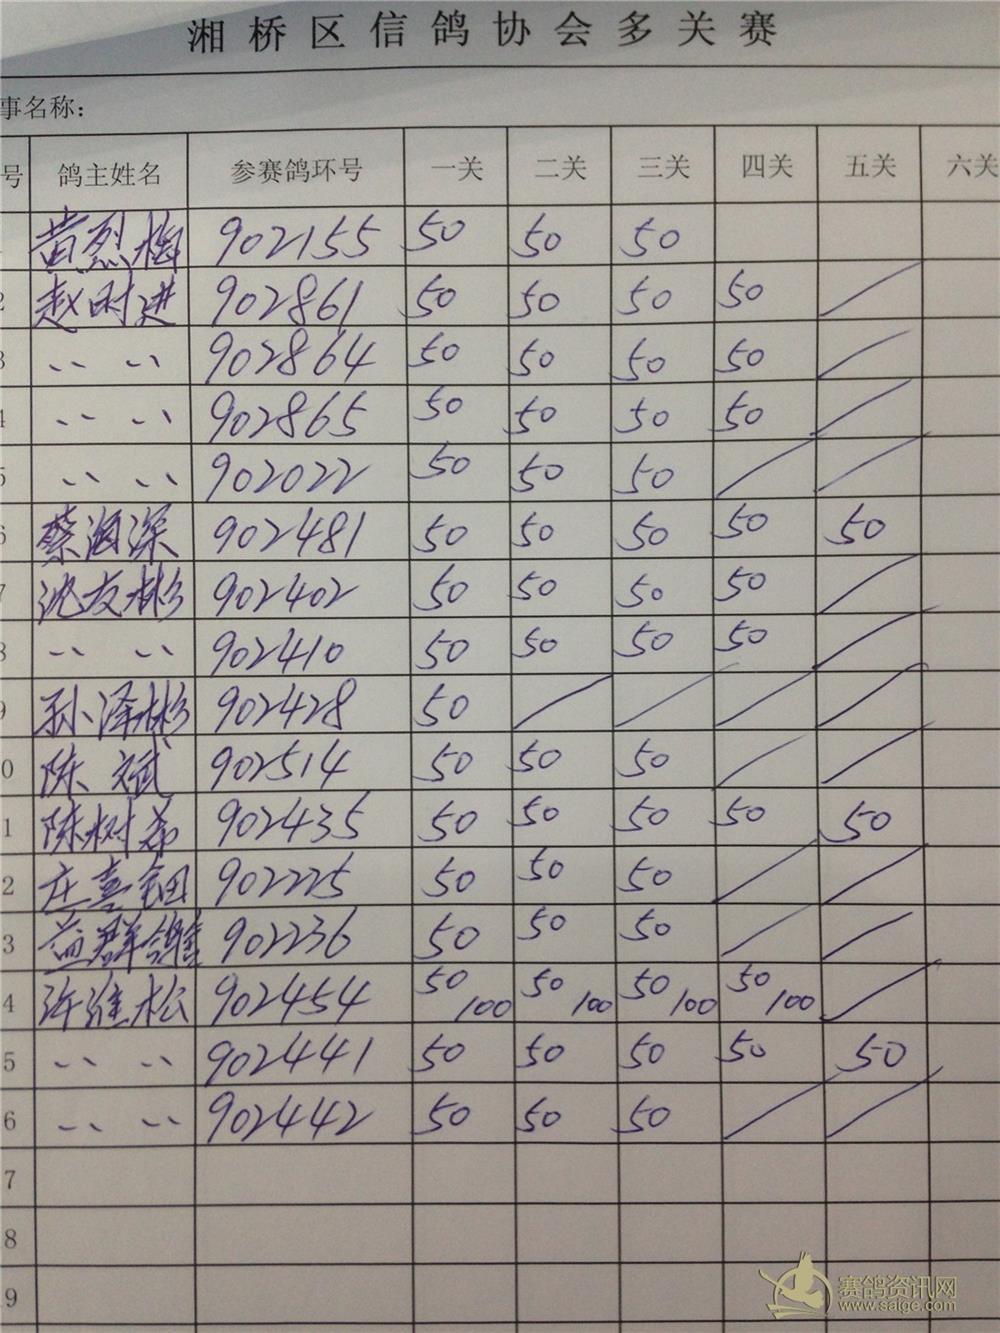 湘桥区信鸽协会多关赛
事名称：
号 鸽主姓名 参赛鸽环号 一关 二关 三关 四关 五关 六关
黄烈梅 902155 50 50 50
2 赵时进 902861 50 50 50 50 /
3 〃 〃 902864 50 50 50 50 /
4 〃 〃 902865 50 50 50 50 /
5 〃 〃 902022 50 50 50 / /
6 蔡海深 902481 50 50 50 50 50
7 沈友彬 902402 50 50 50 50 /
8 〃 〃 902410 50 50 50 50 /
9 孙泽彬 902428 50 / / / /
0 陈斌 902514 50 50 50 / /
1 陈树希 902435 50 50 50 50 50
2 庄喜钿 902225 50 50 50 / /
3 益群鸽 902236 50 50 50 / /
4 许维松 902454 50/100 50/100 50/100 50/100 /
5 〃 〃 902441 50 50 50 50 50
6 〃 〃 902442 50 50 50 / /
7
8
9
赛鸽资讯网
www.saige.com